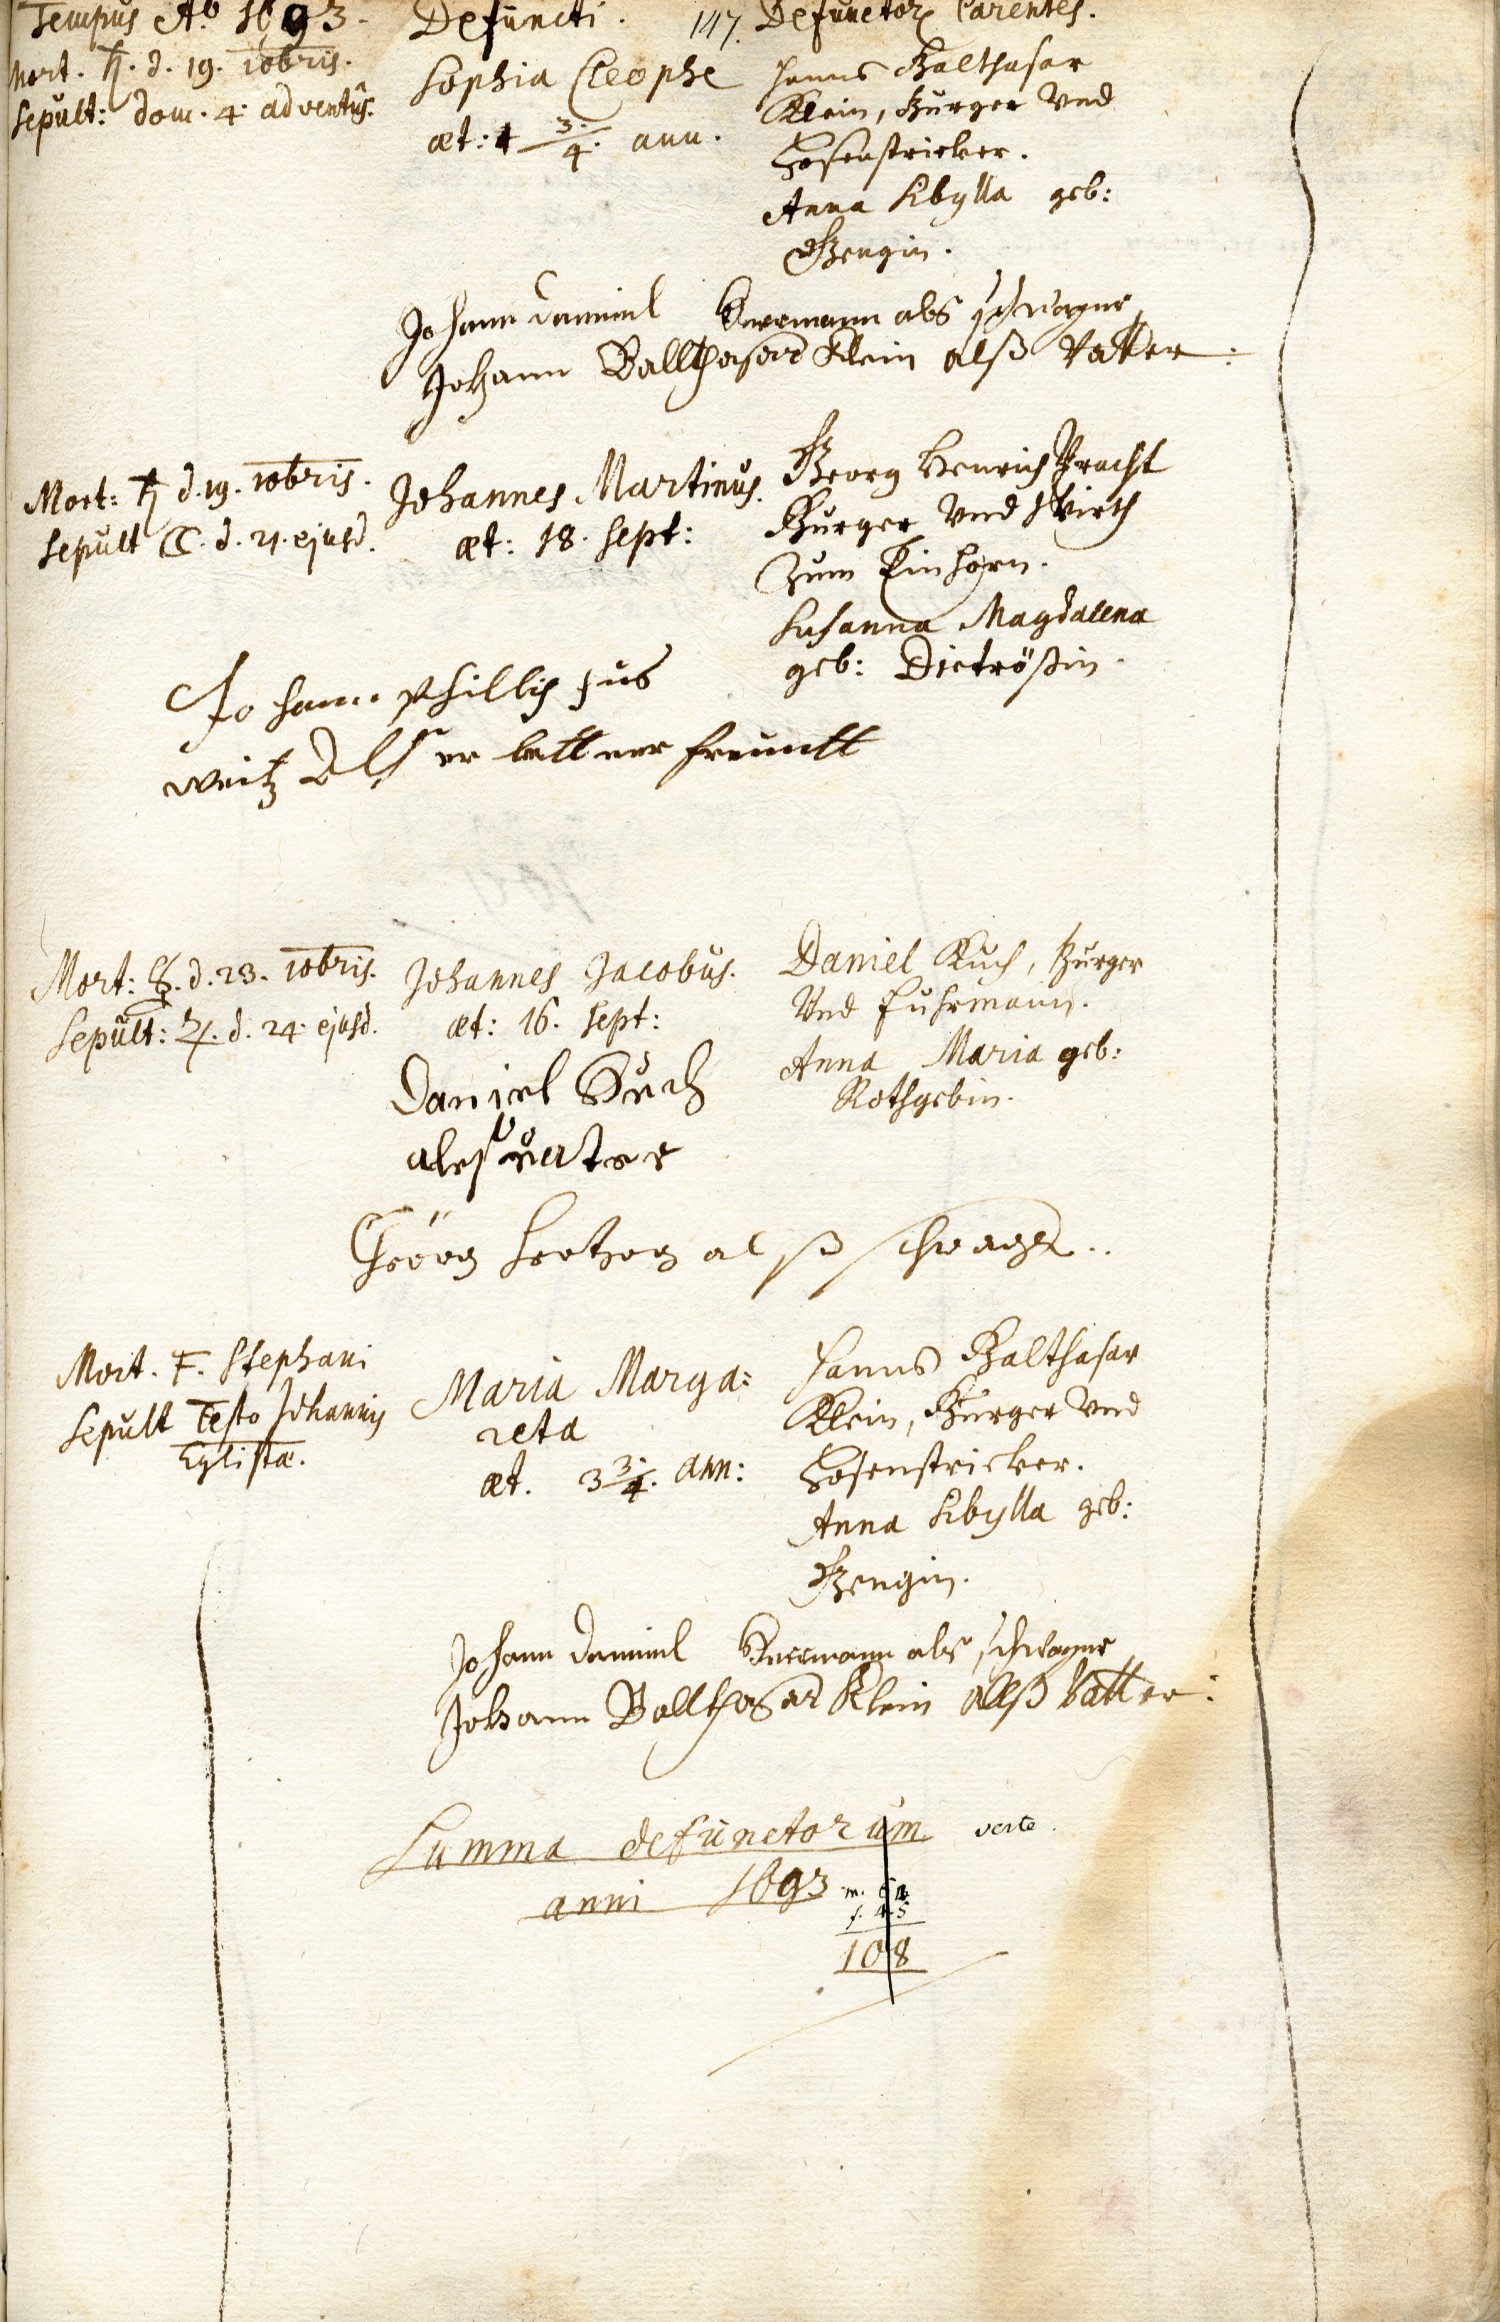 Tempus Aō 1693. Defuncti. 147. Defunctor Parentes.
Mort. ♄. d. 19. 10bris.
Sepult: dom. 4. adventus.
Sophia Cleophe
æt: 4 3/4. ann.
Hanns Balthasar
Klein, Burger Und
Hosenstricker.
Anna Sibylla geb:
Bengin.
Johann Daniel als schwager
Johann Ballthasar Klein alß Vatter:
Mort: ♄ d. 19. 10bris.
Sepult ☾. d. 21. ejusd.
Johannes Martinus.
æt: 18. sept:
Georg Henrich Pracht
Burger Und Wirth
Zum Einhorn.
Susanna Magdalena
geb: Dietrößin.
Johann Phillippus
weitz Alß er freundt
Mort: ☿. d. 23. 10bris.
Sepult: ♃. d. 24. ejusd.
Johannes Jacobus.
æt: 16. sept:
Daniel Kuch, Burger
Und Fuhrmann.
Anna Maria geb:
Rothgebin.
Daniel Kuch
alß vatter
Geörg Hertzog alß schwager..
Mort. F. Stephani
Sepult Festo Johannis
Eglistæ.
Maria Marga:
reta
æt. 3 3/4. ann:
Hanns Balthasar
Klein, Burger Und
Hosenstricker.
Anna Sibylla geb:
Bengin.
Johann Daniel als schwager
Johann Ballthasar Klein allß Vatter:
Summa defunctorum verte.
anni 1693
m.
f. 45
108